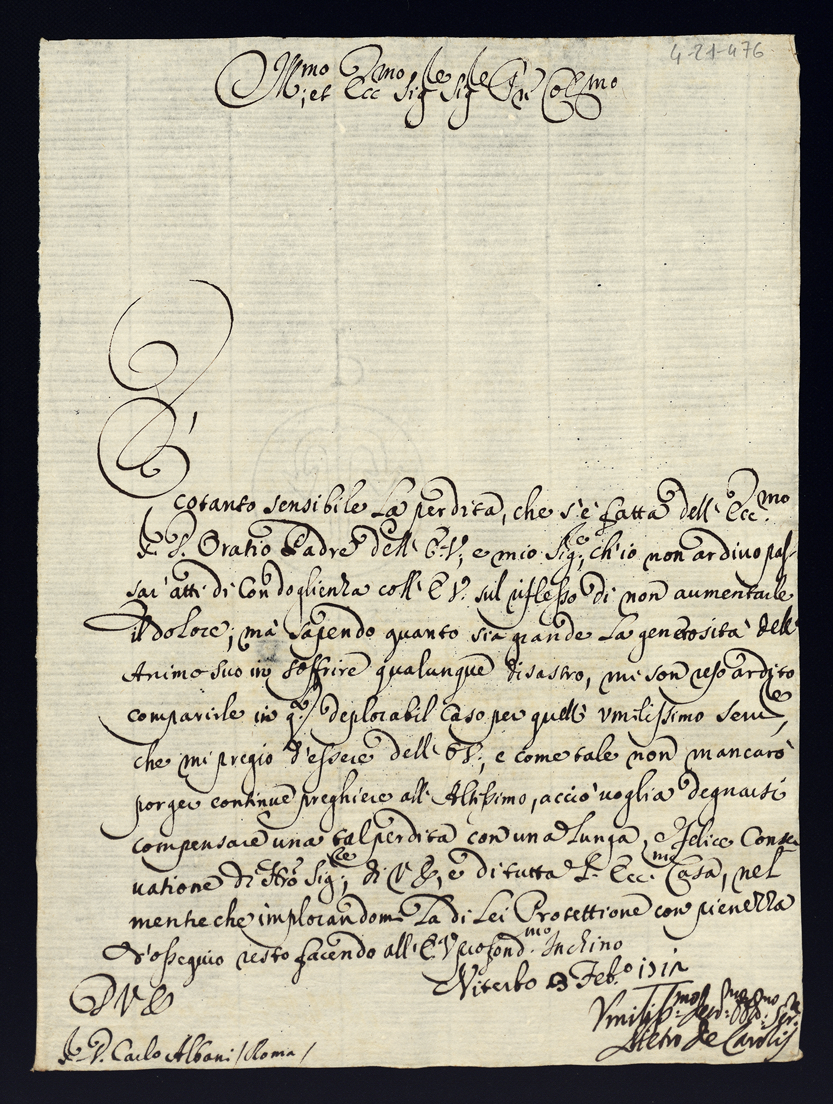 4-21-476
Ill.mo et Ecc.mo Sig.re Sig.re Pr̃n Col.mo
È cotanto sensibile la perdita, che s'è fatta dell' Ecc.mo
Sr. D. Oratio Padre dell' E.V., e mio Sig.re, ch'io non ardivo pas-
sar' atti di Condoglienza coll' E.V. sul riflesso di non aumentarle
il dolore; mà sapendo quanto sia grande la generosità dell'
Animo suo in soffrire qualunque disastro, mi son reso ardito
comparirle in q.to deplorabil Caso per quell' Vmilissimo Seru.e,
che mi pregio d'essere dell' E.V., e come tale non mancarò
porger continue preghiere all' Altissimo, acciò voglia degnarsi
compensare una tal perdita con una lunga, e felice Conser-
uatione di Sig.re, di V.E., e di tutta l' Ecc.ma Casa, nel
mentre che implorandomi la di Lei Protettione con pienezza
d'ossequio resto facendo all' E.V. profond.mo Inchino
Viterbo Feb.o 1712
D V.E.
Vmiliss.mo Deu.mo Obb.mo Ser.re
Pietro de Carolis
Sr. D. Carlo Albani / Roma /